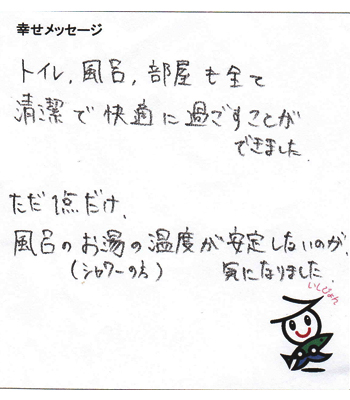 幸せメッセージ
トイレ,風呂,部屋も全て
清潔で快適に過ごすことが
できました.
ただ1点だけ、
風呂のお湯の温度が安定しないのが、
(シャワーの方) 気になりました.